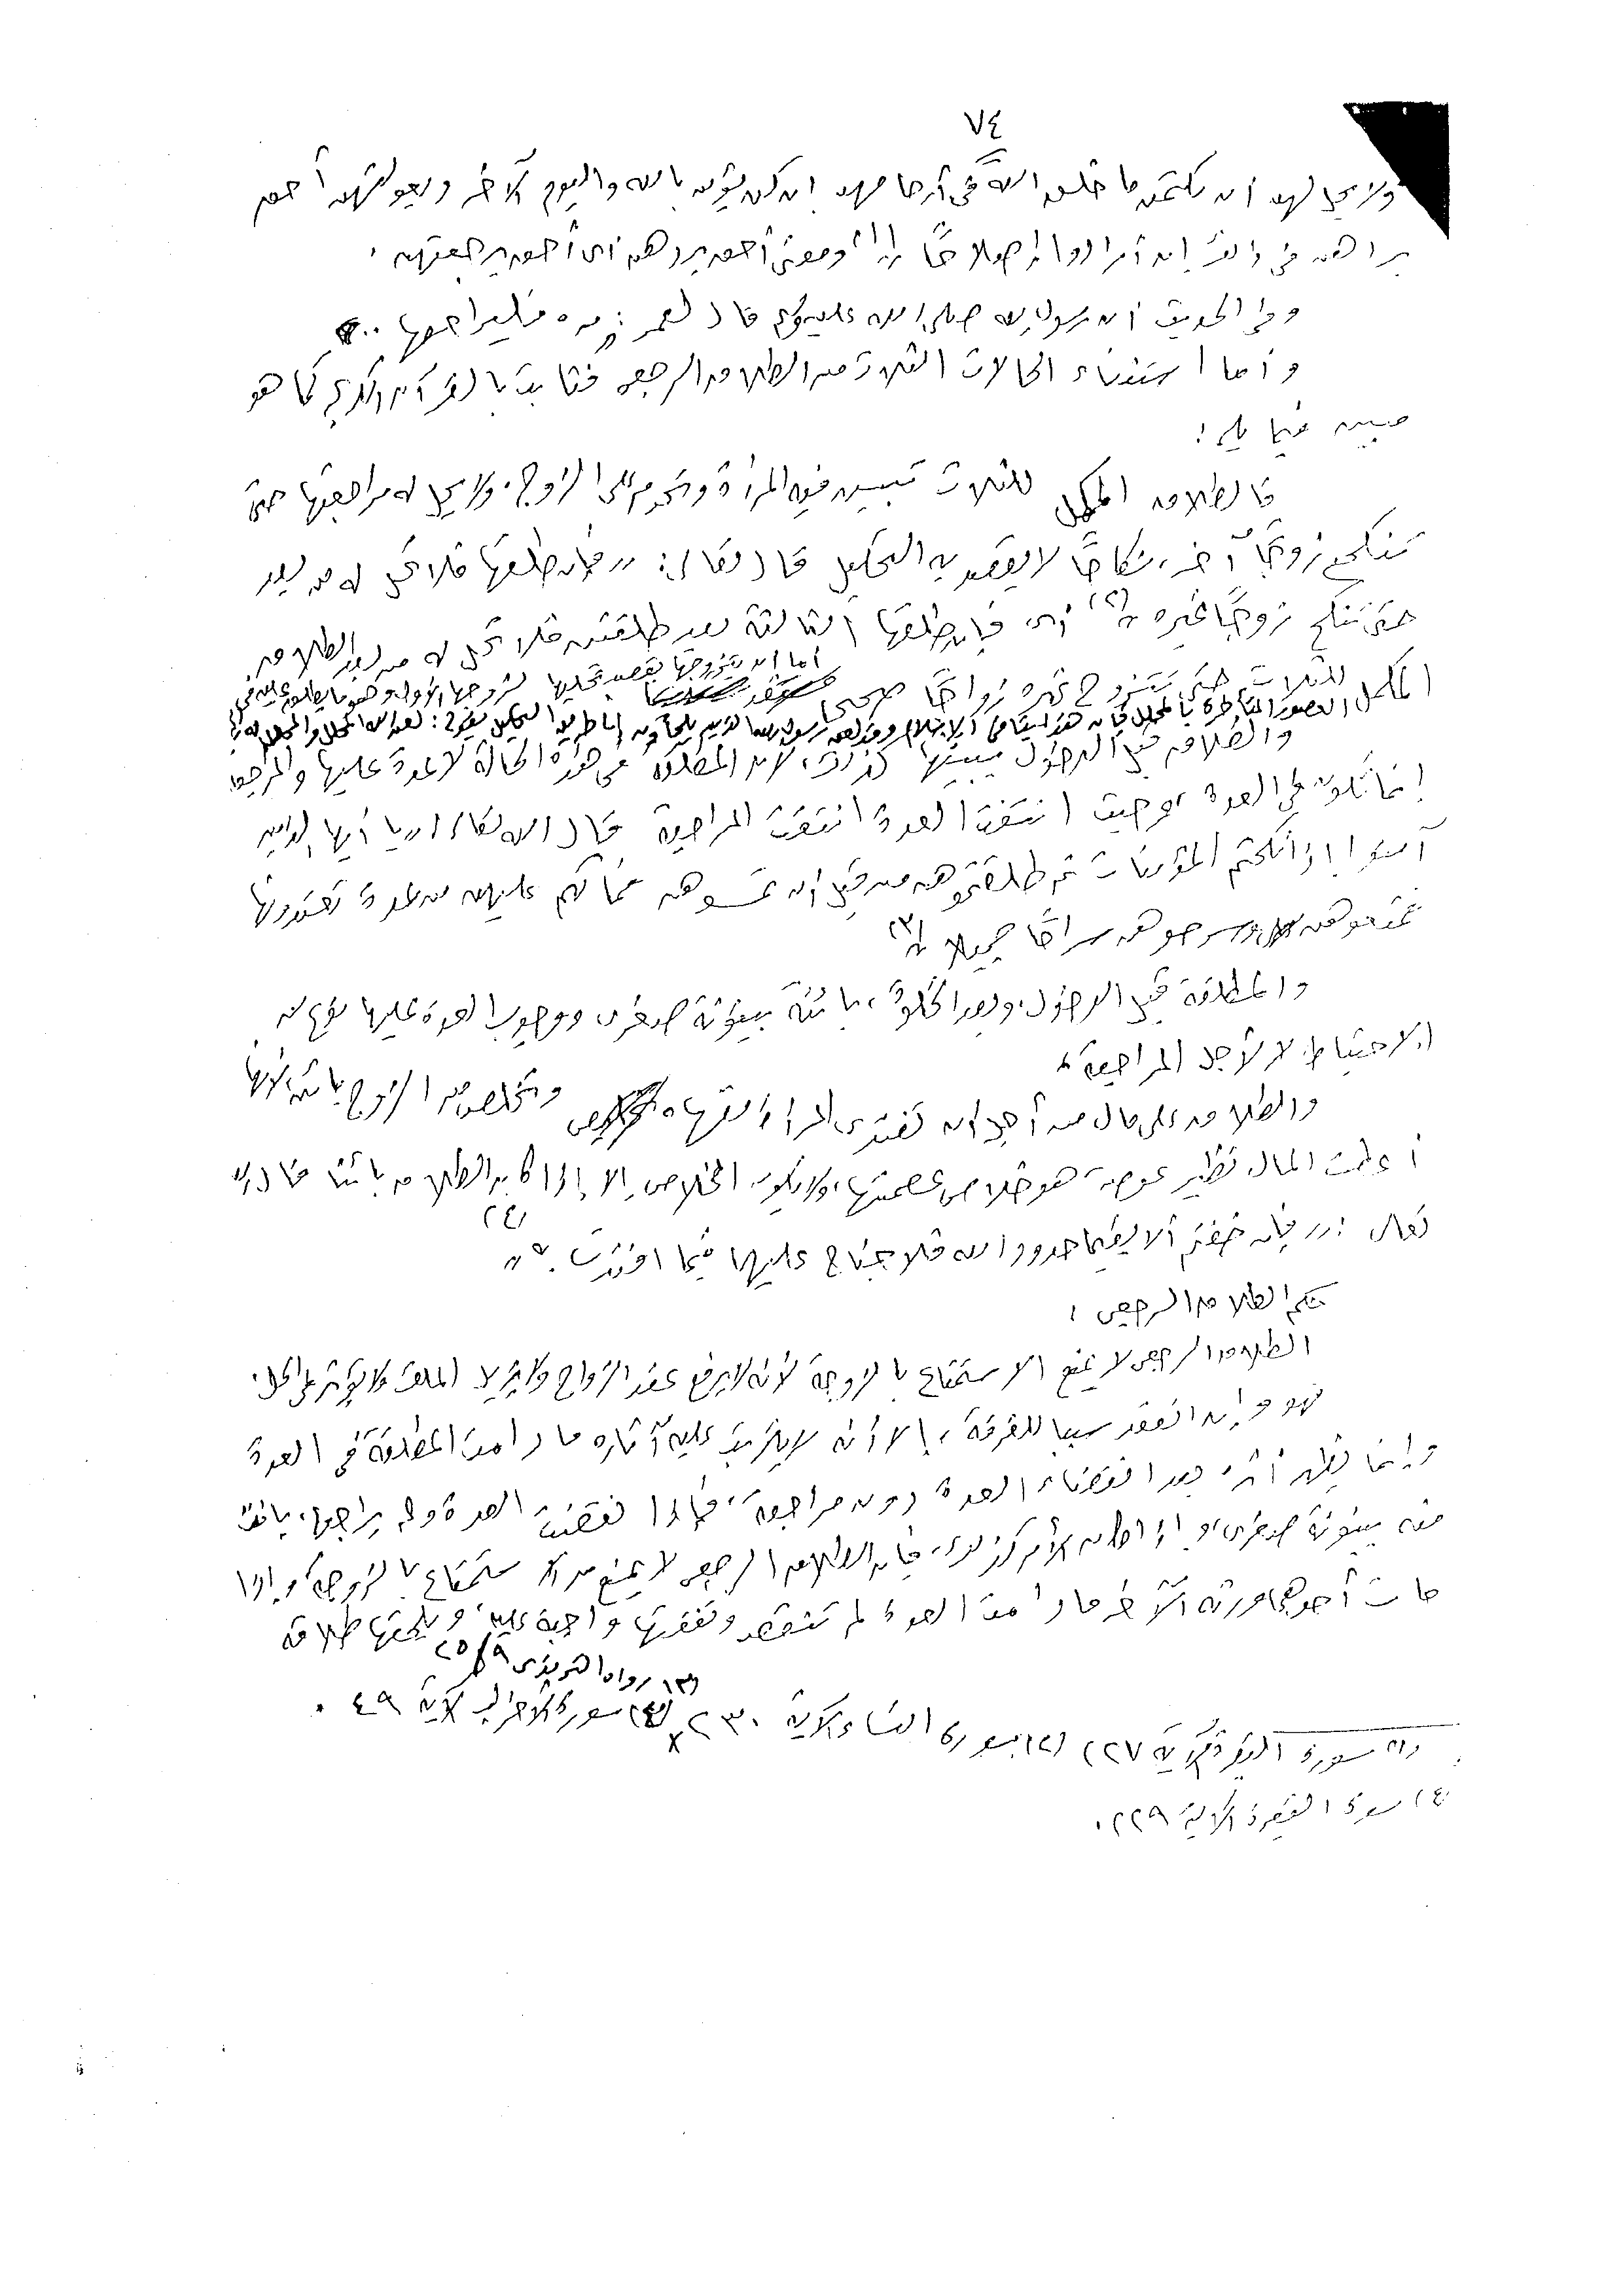 ٧٤
ولا يحل لهن أن يكتمن ما خلق الله في أرحامهن إن كن يؤمن بالله واليوم الآخر وبعولتهن أحق
بردهن في ذلك إن أرادوا إصلاحًا (١) ومعنى أحق بردهن أى أحق برجعتهن .
وفى الحديث أن رسول الله صلى الله عليه وسلم قال لعمر : مره فليراجعها ..
وأما استثناء الحالات الثلاث من الطلاق الرجعى فثابت بالقرآن الكريم كما هو
مبين فيما يلى :
فالطلاق المكمل للثلاث تبين فيه المرأة وتحرم على الزوج ، ولا يحل له مراجعتها حتى
تنكح زوجًا آخر ، نكاحًا لا يقصد به التحليل قال تعالى : " فإن طلقها فلا تحل له من بعد
حتى تنكح زوجًا غيره " (٢) أى فإن طلقها الثالثة بعد طلقتين فلا تحل له من بعد الطلاق
المكمل للثلاث حتى تتزوج غيره زواجًا صحيحا
أما أن يتزوجها بقصد تحليلها لزوجها الأول وهو ما يطلق عليه فى
العصور المتأخرة بالمحلل فإن هذا ينافى الإسلام وقد لعن رسول الله الذين يلجأون إلى طريق التحليل بقوله : لعن الله المحلل والمحلل له (٣)
والطلاق قبل الدخول يبينها كذلك ، لأن المطلقة فى هذه الحالة لا عدة عليها والمراجعة
إنما تكون فى العدة ، وحيث انتفت العدة انتفت المراجعة قال الله تعالى " يا أيها الذين
آمنوا إذا نكحتم المؤمنات ثم طلقتموهن من قبل أن تمسوهن فما لكم عليهن من عدة تعتدونها
فمتعوهن وسرحوهن سراحًا جميلا " (٣)
والمطلقة قبل الدخول ، وبعد الخلوة ، بائنة بينونة صغرى ووجوب العدة عليها نوع من
الاحتياط لا لأجل المراجعة .
والطلاق على مال من أجل أن تفتدى المرأة نفسها وتخلص من الزوج بائن لأنها
أعطت المال نظير عوض هو خلاص عصمتها ، ولا يكون الخلاص إلا إذا كان الطلاق بائنا قال الله
تعالى : " فإن خفتم ألا يقيما حدود الله فلا جناح عليهما فيما افتدت به " (٤)
حكم الطلاق الرجعى :
الطلاق الرجعى لا يمنع الاستمتاع بالزوجة لأنه لا يرفع عقد الزواج ولا يزيل الملك ولا يؤثر فى الحل .
فهو وإن انعقد سببا للفرقة ، إلا أنه لا يترتب عليه آثاره ما دامت المطلقة فى العدة
وإنما يظهر أثره بعد انقضاء العدة دون مراجعة ، فإذا انقضت العدة ولم يراجعها ، بانت
منه بينونة صغرى ، وإذا كان الأمر كذلك ، فإن الطلاق الرجعى لا يمنع من الاستمتاع بالزوجة ، وإذا
مات أحدهما ورثه الآخر ما دامت العدة لم تنقض ونفقتها واجبة عليه ، ويلحقها طلاقه
(٣) رواه الترمذى
(١) سورة البقرة الآية ٢٢٧ (٢) سورة النساء الآية ٢٣٠ (٤) سورة الأحزاب الآية ٤٩ .
(٤) سورة البقرة الآية ٢٢٩ .